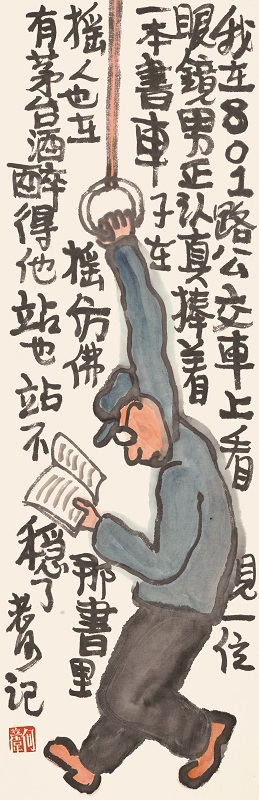 我在801路公交車上看見一位
眼鏡男正认真捧着
一本書車子在
摇人也在
摇仿佛
那書里
有茅台酒醉得他站也站不
穩了
記